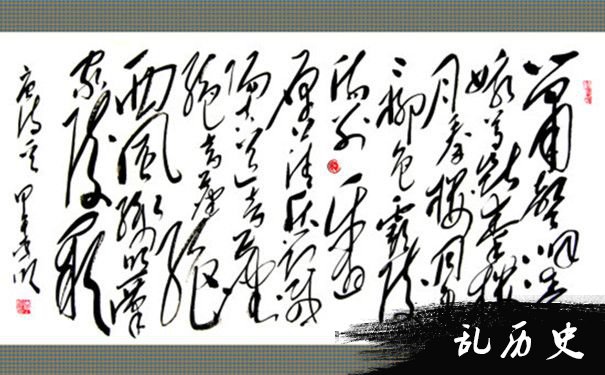 箫聲咽秦
娥梦断秦楼
月秦楼月年
々柳色霸陵
伤别 乐游
原上清秋节咸
阳古道音尘
绝音尘绝
西风残照汉
家陵阙
乱历史